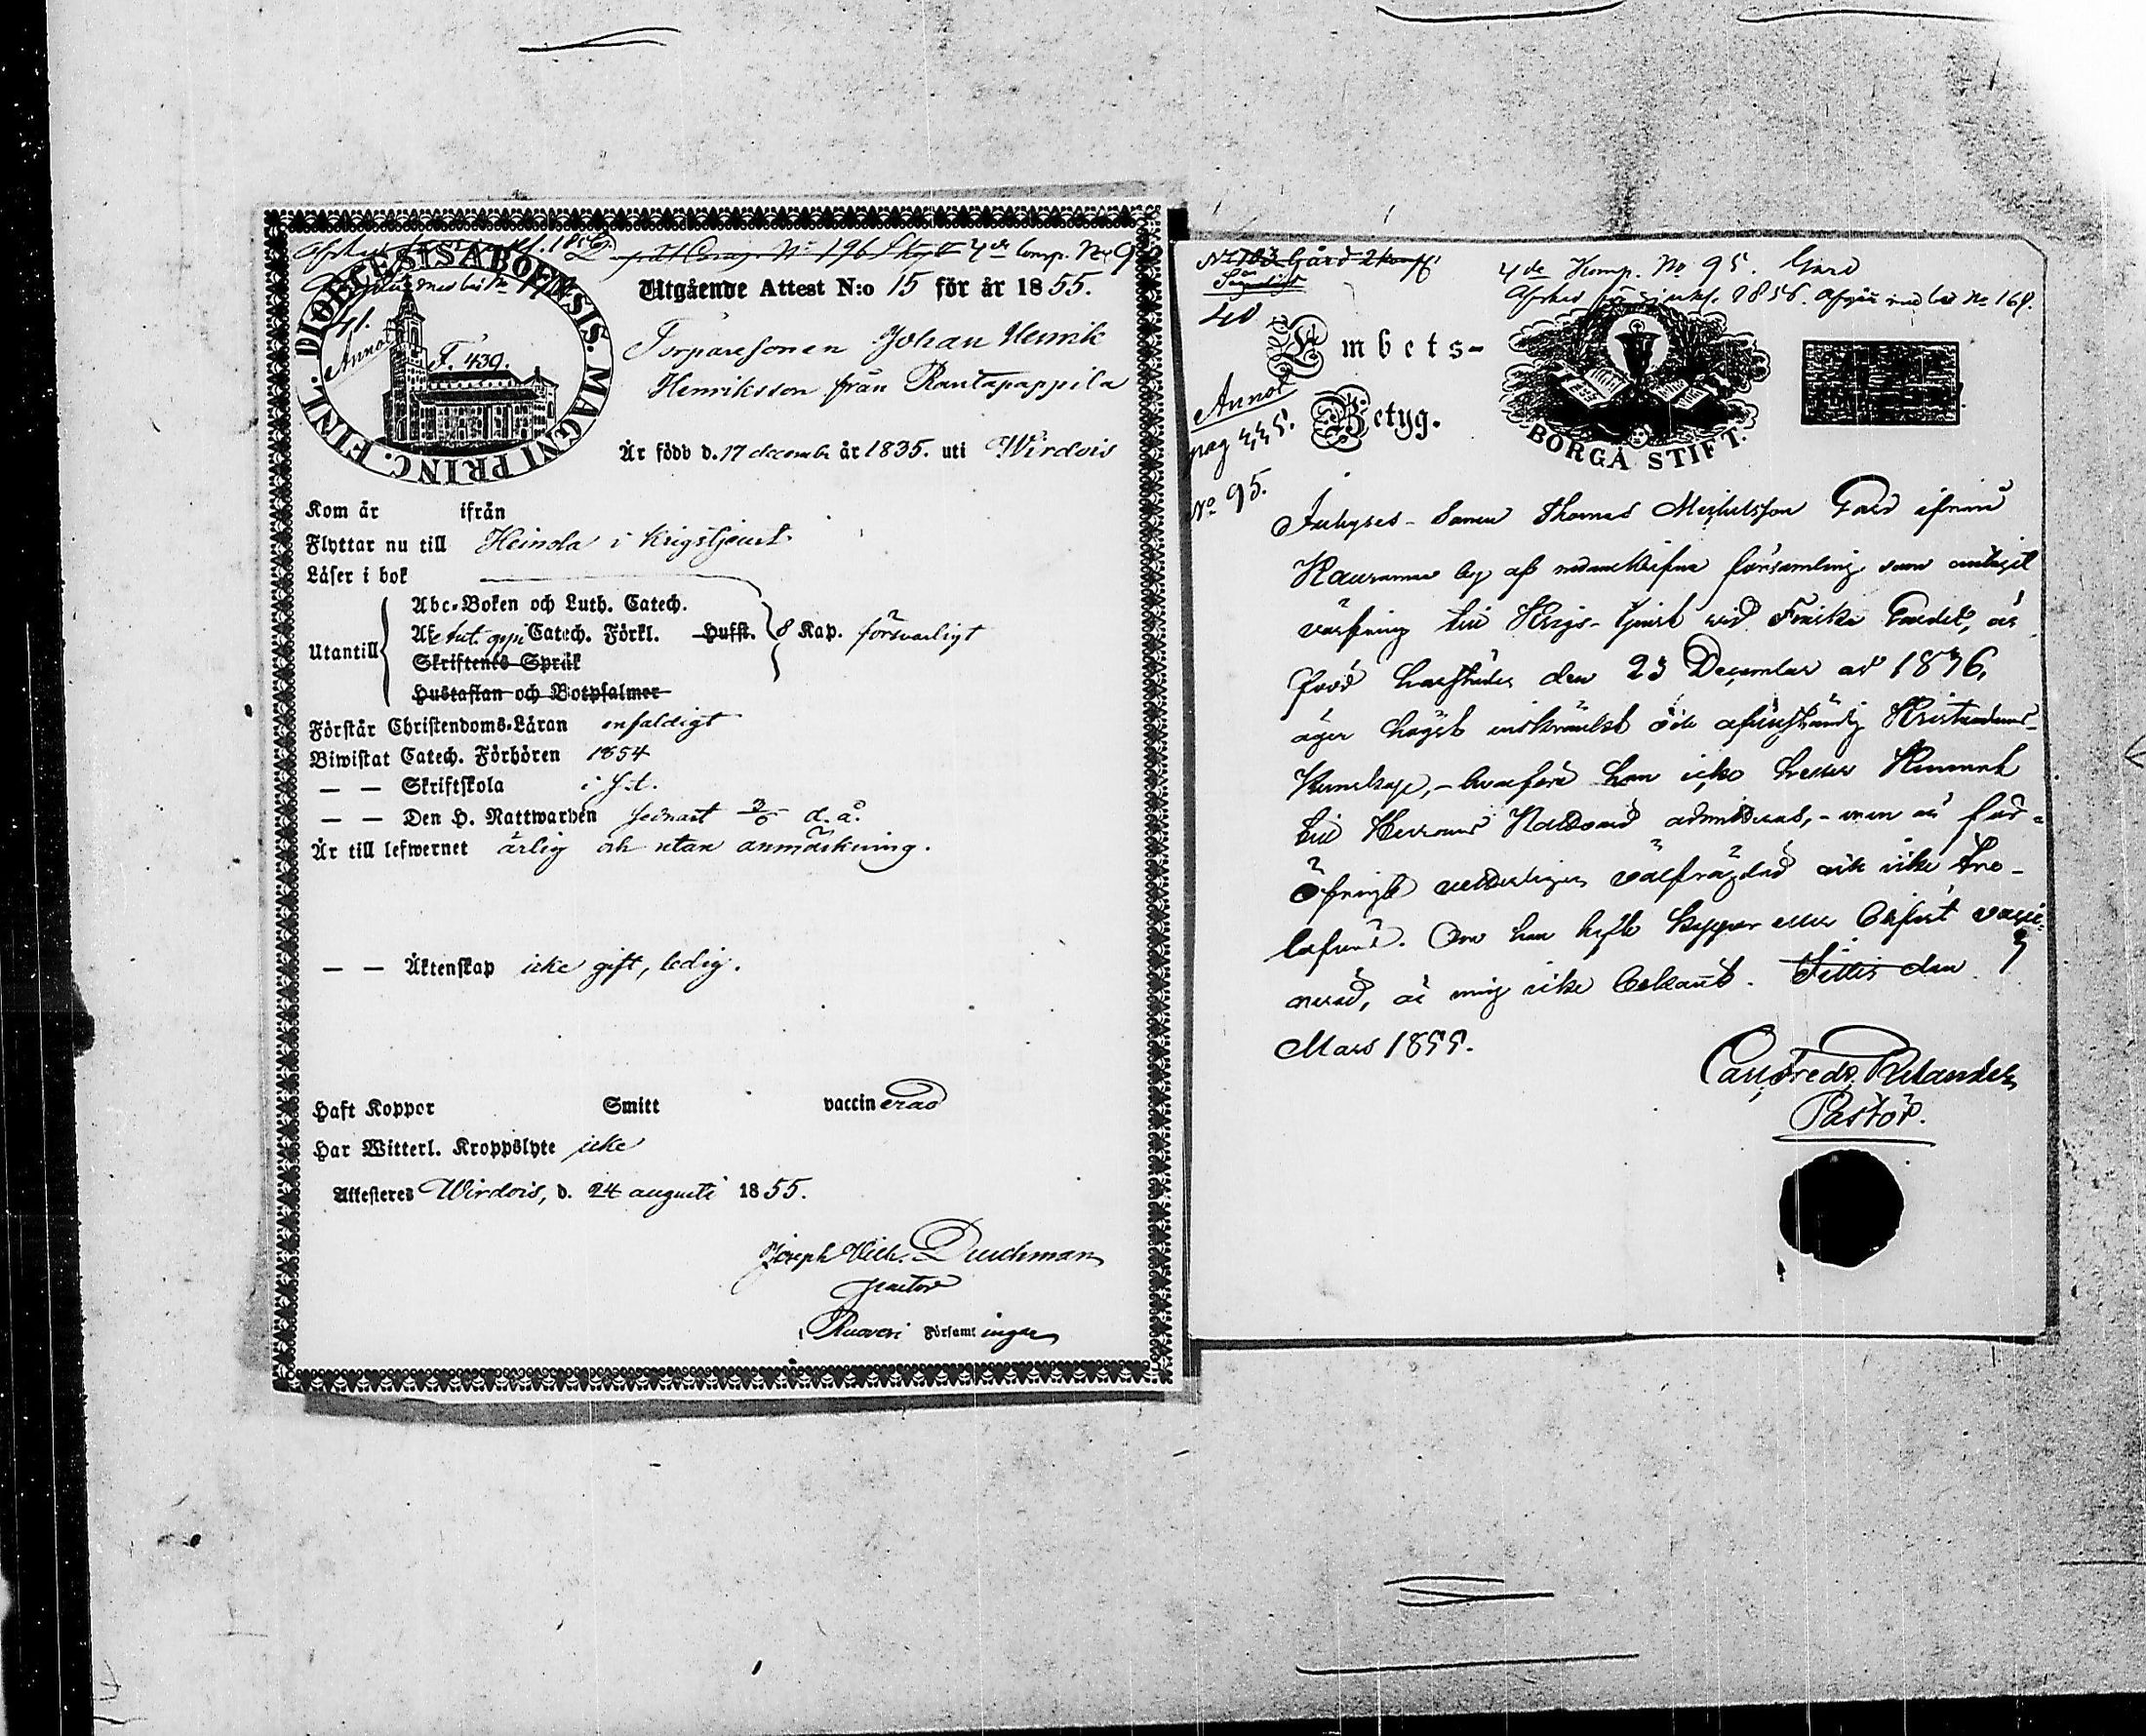 4de Comp. No 9
Utgående Attest N:o 15 för år 1855.
DIOECESIS ABOENSIS. MAGNI PRINC. FINL.
41.
Annot
F. 439.
Torparesonen Johan Henrik
Henriksson från Rantapappila
Är född d. 17 december år 1835. uti Wirdois
Kom år ifrån
Flyttar nu till Heinola i Krigstjenst
Läser i bok
Utantill
Abc-Boken och Luth. Catech.
Catech. Förkl. Husst. 8 Kap. försvarligt
Skriftenes Språk
Hustaflan och Botpsalmer
Förstår Christendoms-Läran enfaldigt
Biwistat Catech. Förhören 1854
— — Skriftskola i s. t.
— — Den H. Nattwarden sednast 3/6 d. å.
Är till lefwernet ärlig och utan anmärkning.
— — Äktenskap icke gift, ledig.
Haft Koppor Smitt vaccinerad
Har Witterl. Kroppslyte icke
Attesteres Wirdois, d. 24 augusti 1855.
Joseph Wilh. Durchman
pastor
i Ruovesi Församlingar
No 103 Gård 2 komp.
4de Komp. No 95. Gård
40
Embets-
Betyg.
BORGÅ STIFT.
Annot
pag 445.
No 95.
Inhyses-Sonen Thomas Michelsson Gård ifrån
by af nedanskrifne församling som antagit
värfning till Krigs-tjenst vid Finska Gardet, är
född härstädes den 23 December år 1836,
äger högst inskränkt och ofullständig Kristendoms-
Kunskap, - hvarföre han icke heller kunnat
till Herrans Nattvard admitteras, - men är för-
öfrigt välfrägdad och icke tro-
lofvad. Om han haft koppor eller blifvit vacci-
nerad, är mig icke bekant. Sittis den 7
Mars 1855.
Carl Fredr. Relander
Pastor.